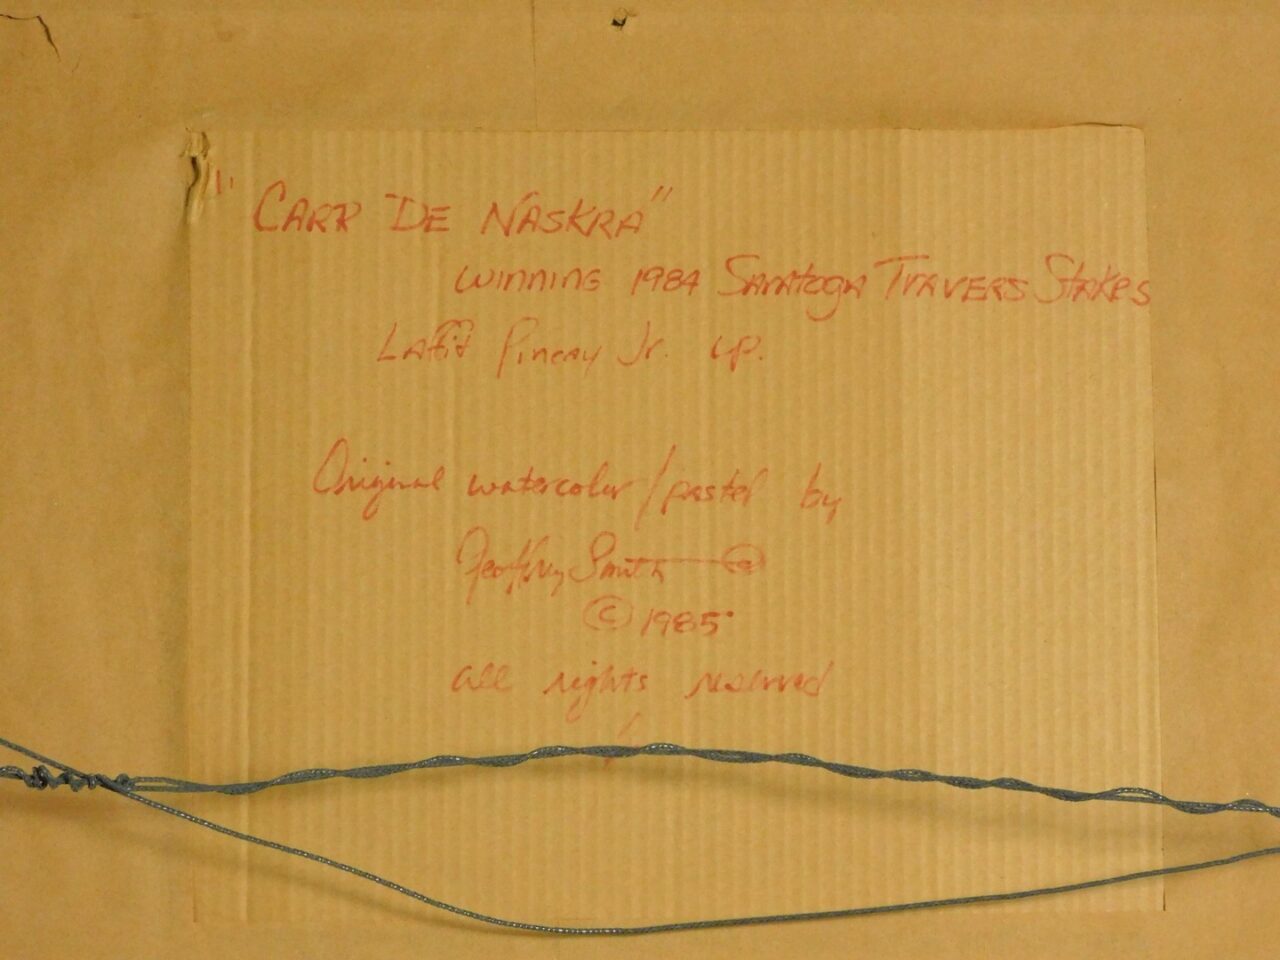 "CARR DE NASKRA"
WINNING 1984 Saratoga TRAVERS Stakes
Laffit Pincay Jr. up.
Original watercolor/pastel by
Geoffrey Smith
© 1985
all rights reserved